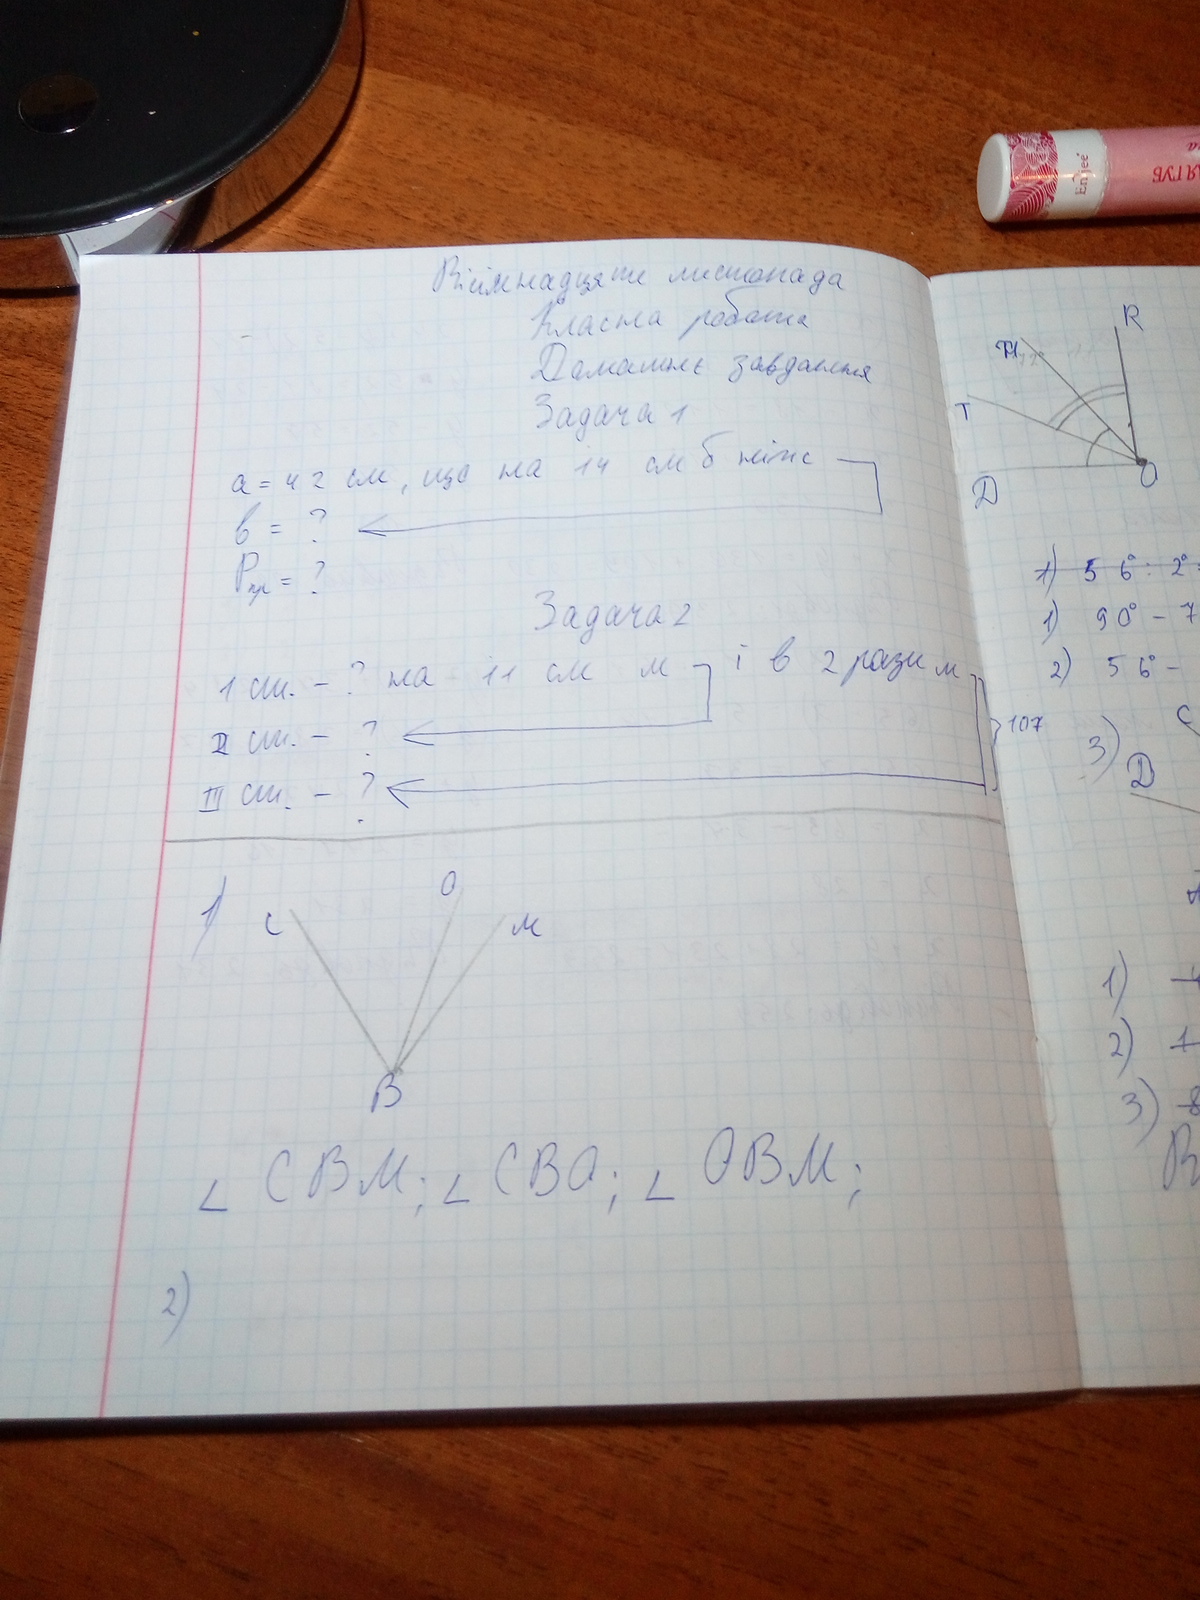 Вісімнадцяте листопада
Класна робота
Домашнє завдання
Задача 1
a = 42 см, що на 14 см б ніж
b = ?
Pпр = ?
Задача 2
I ст. - ? на 11 см м і в 2 рази м
II ст. - ?
III ст. - ?
107
1)
C O M
B
∠ CBM; ∠ CBO; ∠ OBM;
2)
R
T
D O
1) 56° : 2°
1) 90° - 7
2) 56° -
3)
C
D
1)
2)
3)
Enjee